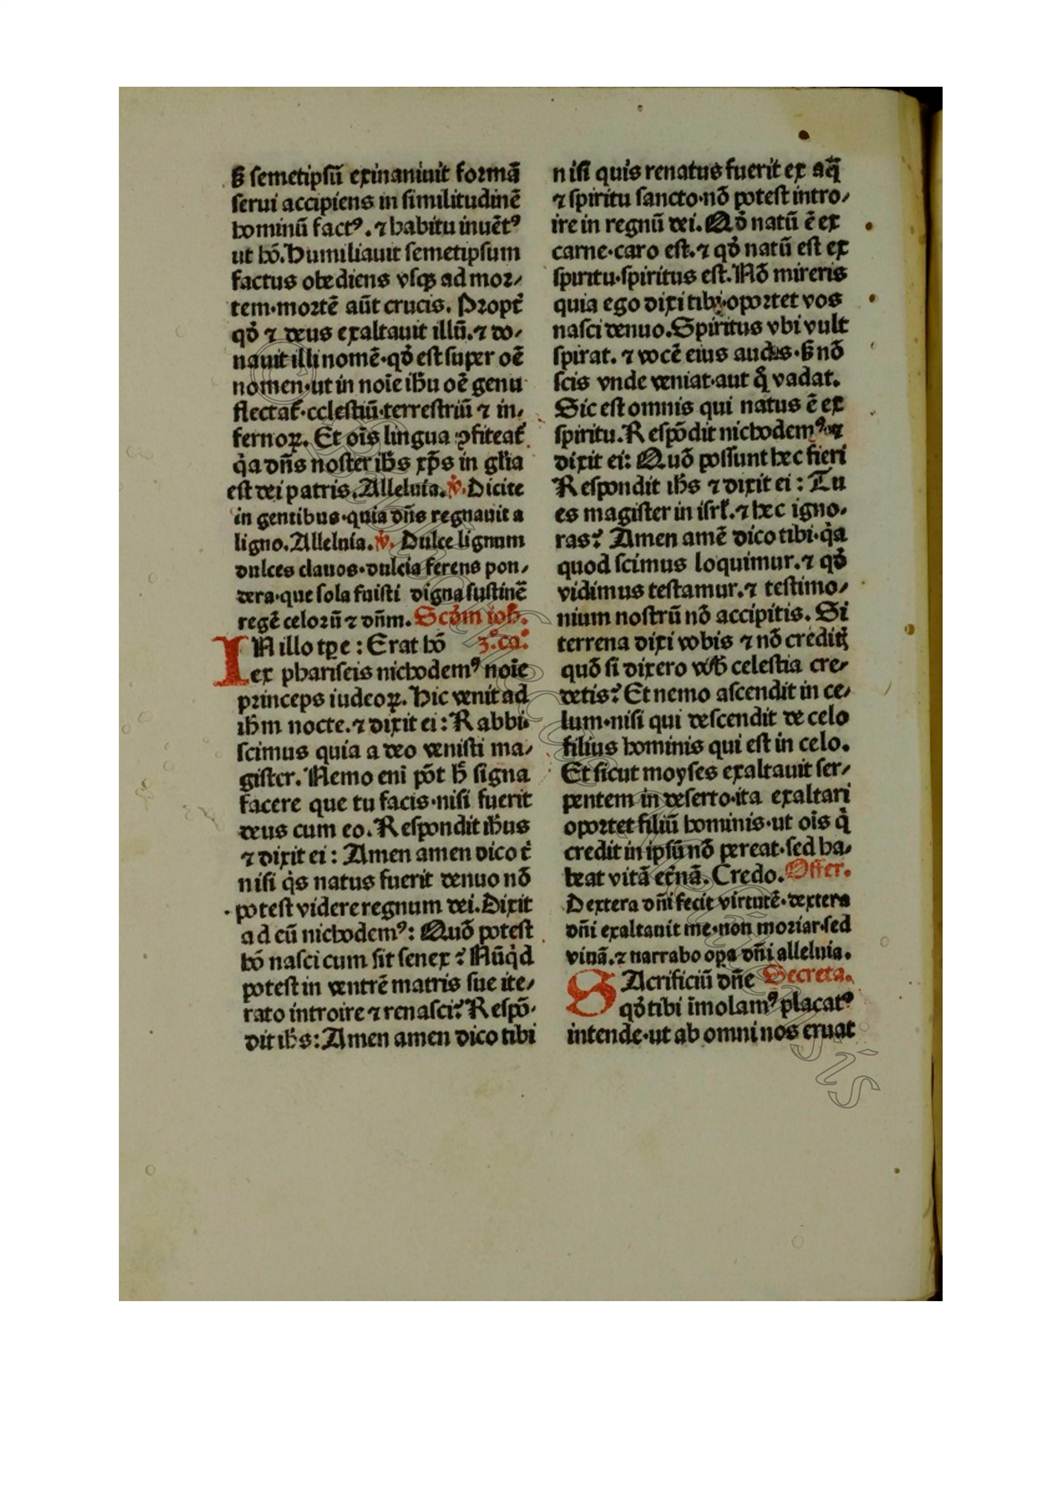 ß semetipsū exinaniuit formā
serui accipiens in similitudinē
hominū factꝰ. ⁊ habitu inuētꝰ
ut hō. Humiliauit semetipsum
factus obediens vsqꝫ ad mor⸗
tem·mortē aūt crucis. Propt̄
qḋ ⁊ deus exaltauit illū.⁊ do⸗
nauit illi nomē·qḋ est super oē
nomen·ut in noīe ihū oē genu
flectat᷑·celestiū·terrestriū ⁊ in⸗
fernoꝝ. Et oīs lingua ꝓfiteat᷑
q̇a dn̄s noster ihs̄ xp̄s in gl̄ia
est dei patris. Alleluia. ℣. Dicite
in gentibus·quia dn̄s regnauit a
ligno. Alleluia. ℣. Dulce lignum
dulces clauos·dulcia ferens pon⸗
dera·que sola fuisti digna sustinē
regē celorū ⁊ dn̄m. Scḋm ioh̄.
IN illo tp̄e : Erat hō 3.º ca.º
ex phariseis nichodemꝰ noīe
princeps iudeoꝝ. Hic venit ad
ihm̄ nocte. ⁊ dixit ei : Rabbi·
scimus quia a deo venisti ma⸗
gister. Nemo eni pōt h̄ signa
facere que tu facis·nisi fuerit
deus cum eo. Respondit ihūs
⁊ dixit ei : Amen amen dico t̄
nisi q̇s natus fuerit denuo nō
potest videre regnum dei. Dixit
ad eū nichodemꝰ: Quō potest
hō nasci cum sit senex ? Nūq̇d
potest in ventrē matris sue ite⸗
rato introire ⁊ renasci? Respō⸗
dit ihs̄: Amen amen dico tibi
nisi quis renatus fuerit ex aq̄
⁊ spiritu sancto·nō potest intro⸗
ire in regnū dei. Qḋ natū ē ex
carne·caro est.⁊ qḋ natū est ex
spiritu·spiritus est. Nō mireris
quia ego dixi tibi·oportet vos
nasci denuo. Spiritus vbi vult
spirat. ⁊ vocē eius audis·ß nō
scis vnde veniat·aut q̊ vadat.
Sic est omnis qui natus ē ex
spiritu. Respōdit nichodemꝰ ⁊
dixit ei: Quō possunt hec fieri
Respondit ihs̄ ⁊ dixit ei : Tu
es magister in isrl̄.⁊ hec igno⸗
ras? Amen amē dico tibi·q̇a
quod scimus loquimur.⁊ qḋ
vidimus testamur.⁊ testimo⸗
nium nostrū nō accipitis. Si
terrena dixi vobis ⁊ nō creditꝭ
quō si dixero vob̄ celestia cre⸗
detis? Et nemo ascendit in ce⸗
lum·nisi qui descendit de celo
filius hominis qui est in celo.
Et sicut moyses exaltauit ser⸗
pentem in deserto·ita exaltari
oportet filiū hominis·ut oīs q̇
credit in ipsū nō pereat·sed ha⸗
beat vitā et̄nā. Credo. Offer.
Dextera dn̄i fecit virtutē·dextera
dn̄i exaltauit me·non moriar·sed
viuā.⁊ narrabo opa dn̄i alleluia.
SAcrificiū dn̄e Secreta.
qḋ tibi īmolamꝰ placatꝰ
intende·ut ab omni nos eruat